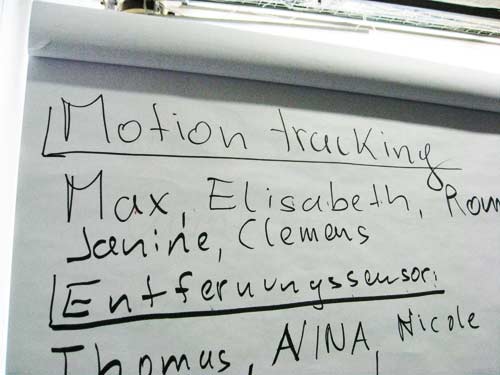 Motion tracking
Max, Elisabeth,
Janine, Clemens
Entfernungssensor:
Thomas, NINA, Nicole